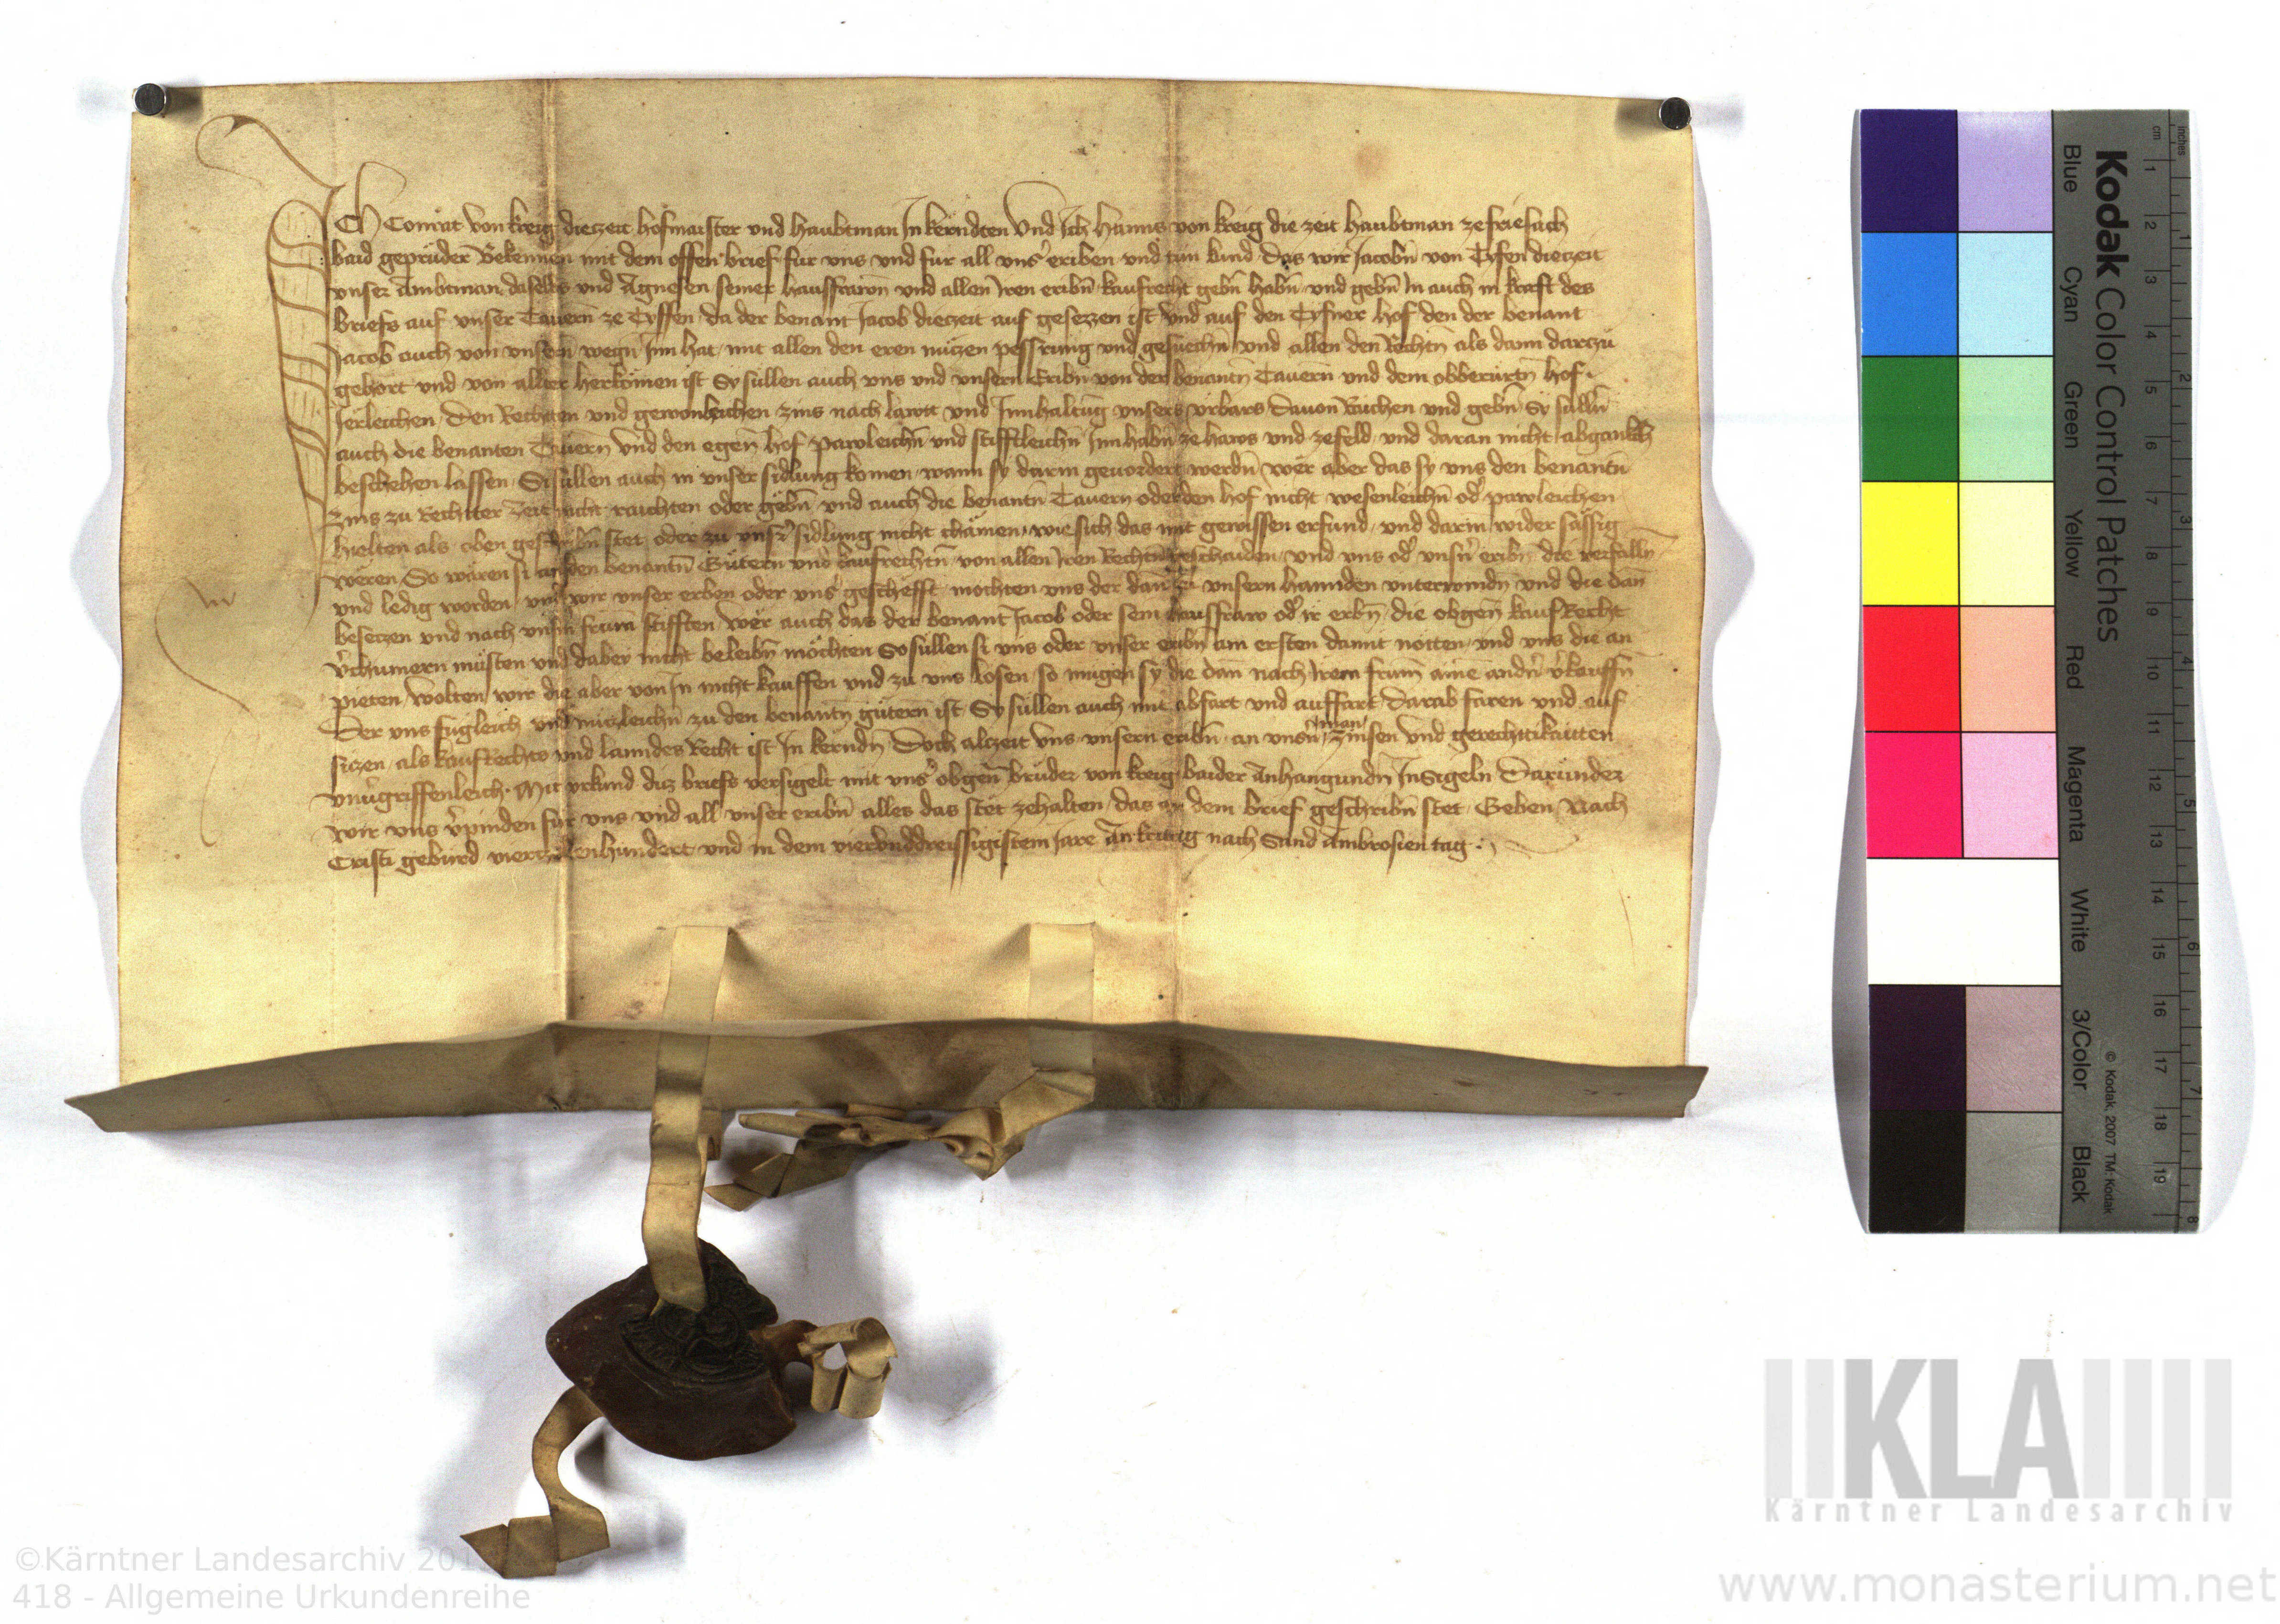 Ich Conrat von kreig dieczeit hofmaister vnd haubtman In kerndten Vnd Ich Hanns von kreig die zeit haubtman ze friesach
baid geprüder Bekennen mit dem offen brief für vns vnd für all vnsʼ eriben vnd tun kund das wir Jacobn̄ von Tyfen dieczeit
vnser Ambtman daselbs vnd Agnesen seiner hausfrawn̄ vnd allen Iren eribn̄ kaufrecht gebn̄ habn̄ vnd gebn̄ In auch in kraft des
briefs auf vnser Tauern̄ ze Tyffen da der benant Jacob dieczeit auf gesezzen ist Vnd auf den Tyfner hof den der benant
Jacob auch von vnsern wegn̄ Inn hat mit allen den eren nüczen pessrung vnd gesüechn̄ vnd allen den Rechtn̄ als dann darczů
gehort vnd von allter herkömen ist Sy süllen auch vns vnd vnsern Eribn̄ von der benantn̄ Tauern vnd dem obberürtn̄ hof
Jerleichen den Rechten vnd gewonleichen zins nach lawtt vnd Innhaltūg vnsers vrbars dauon Raichen vnd gebn̄ Sy sülln̄
auch die benanten Tauern̄ vnd den egen̄ hof pawleichn̄ vnd stifftleichn̄ Innhabn̄ ze haws vnd ze feld vnd daran nicht abgankch
beschehen lassen Si süllen auch in vnser sidlung komen wann sy darin geuordert werdn̄ wër aber das sy vns den benantn̄
zins zu Rechtter zeit nicht raichten oder gëbn̄ vnd auch die benantn̄ Tauern oder den hof nicht wesenleichn̄ odʼ pawleichen
hielten als oben geschribn̄ stet oder zu vnsrʼ sidlung nicht chämen wie sich das mit gewissen erfund vnd darin wider sässig
wëren So wären si auf den benantn̄ Gütern vnd kaufrechtn̄ von allen Iren Rechtn̄ geschaiden vnd vns odʼ vnsn̄ʼ eribn̄ die veruallen
vnd ledig worden vnd wir vnser erben oder vnsʼ geschëfft mochten vns der dan̄ zu vnsern hannden vnterwindn̄ vnd die dan̄
besetzen vnd nach vnsn̄ frum̄ stifften Wër auch das der benant Jacob oder sein hausfraw odʼ ir erbn̄ die obgen̄ kaufRecht
vʼchumern müsten vnd dabey nicht beleibn̄ möchten So süllen si vns oder vnser eribn̄ am ersten damit nötten vnd vns die an
pieten Wolten wir die aber von In nicht kauffen vnd zu vns lösen so mügen sy die dan̄ nach Irem frum̄ aine̅ andn̄ʼ vʼkauffn̄
Der vns fügleich vnd nüczleichn̄ zu den benantn̄ gütern ist Sy süllen auch mit abfart vnd auffart Darab faren vnd auf
siczen als kaufRechts vnd lanndes Recht ist In kerndn̄ Doch alczeit vns vnsern eribn̄ an vnsn̄ʼ man zinsen vnd gerechtikaitten
vnuʼgriffenleich Mit vrkund diz briefs versigelt mit vnsʼ obgen̄ brüder von kreig baider Anhangundn̄ Insigeln Darunder
wir vns vʼpinden für vns vnd all vnser eribn̄ alles das stet zehalten das an dem brief geschribn̄ stet Geben Nach
Cristi gebürd vierczehenhundert vnd in dem vierundreissigistem Jare An freitag nach Sand Ambrosien tag
Kodak Color Control Patches
Blue Cyan Green Yellow Red Magenta White 3/Color Black
© Kodak, 2007 TM: Kodak
inches 1 2 3 4 5 6 7 8
cm 1 2 3 4 5 6 7 8 9 10 11 12 13 14 15 16 17 18 19
KLA
Kärntner Landesarchiv
©Kärntner Landesarchiv
418 - Allgemeine Urkundenreihe
www.monasterium.net